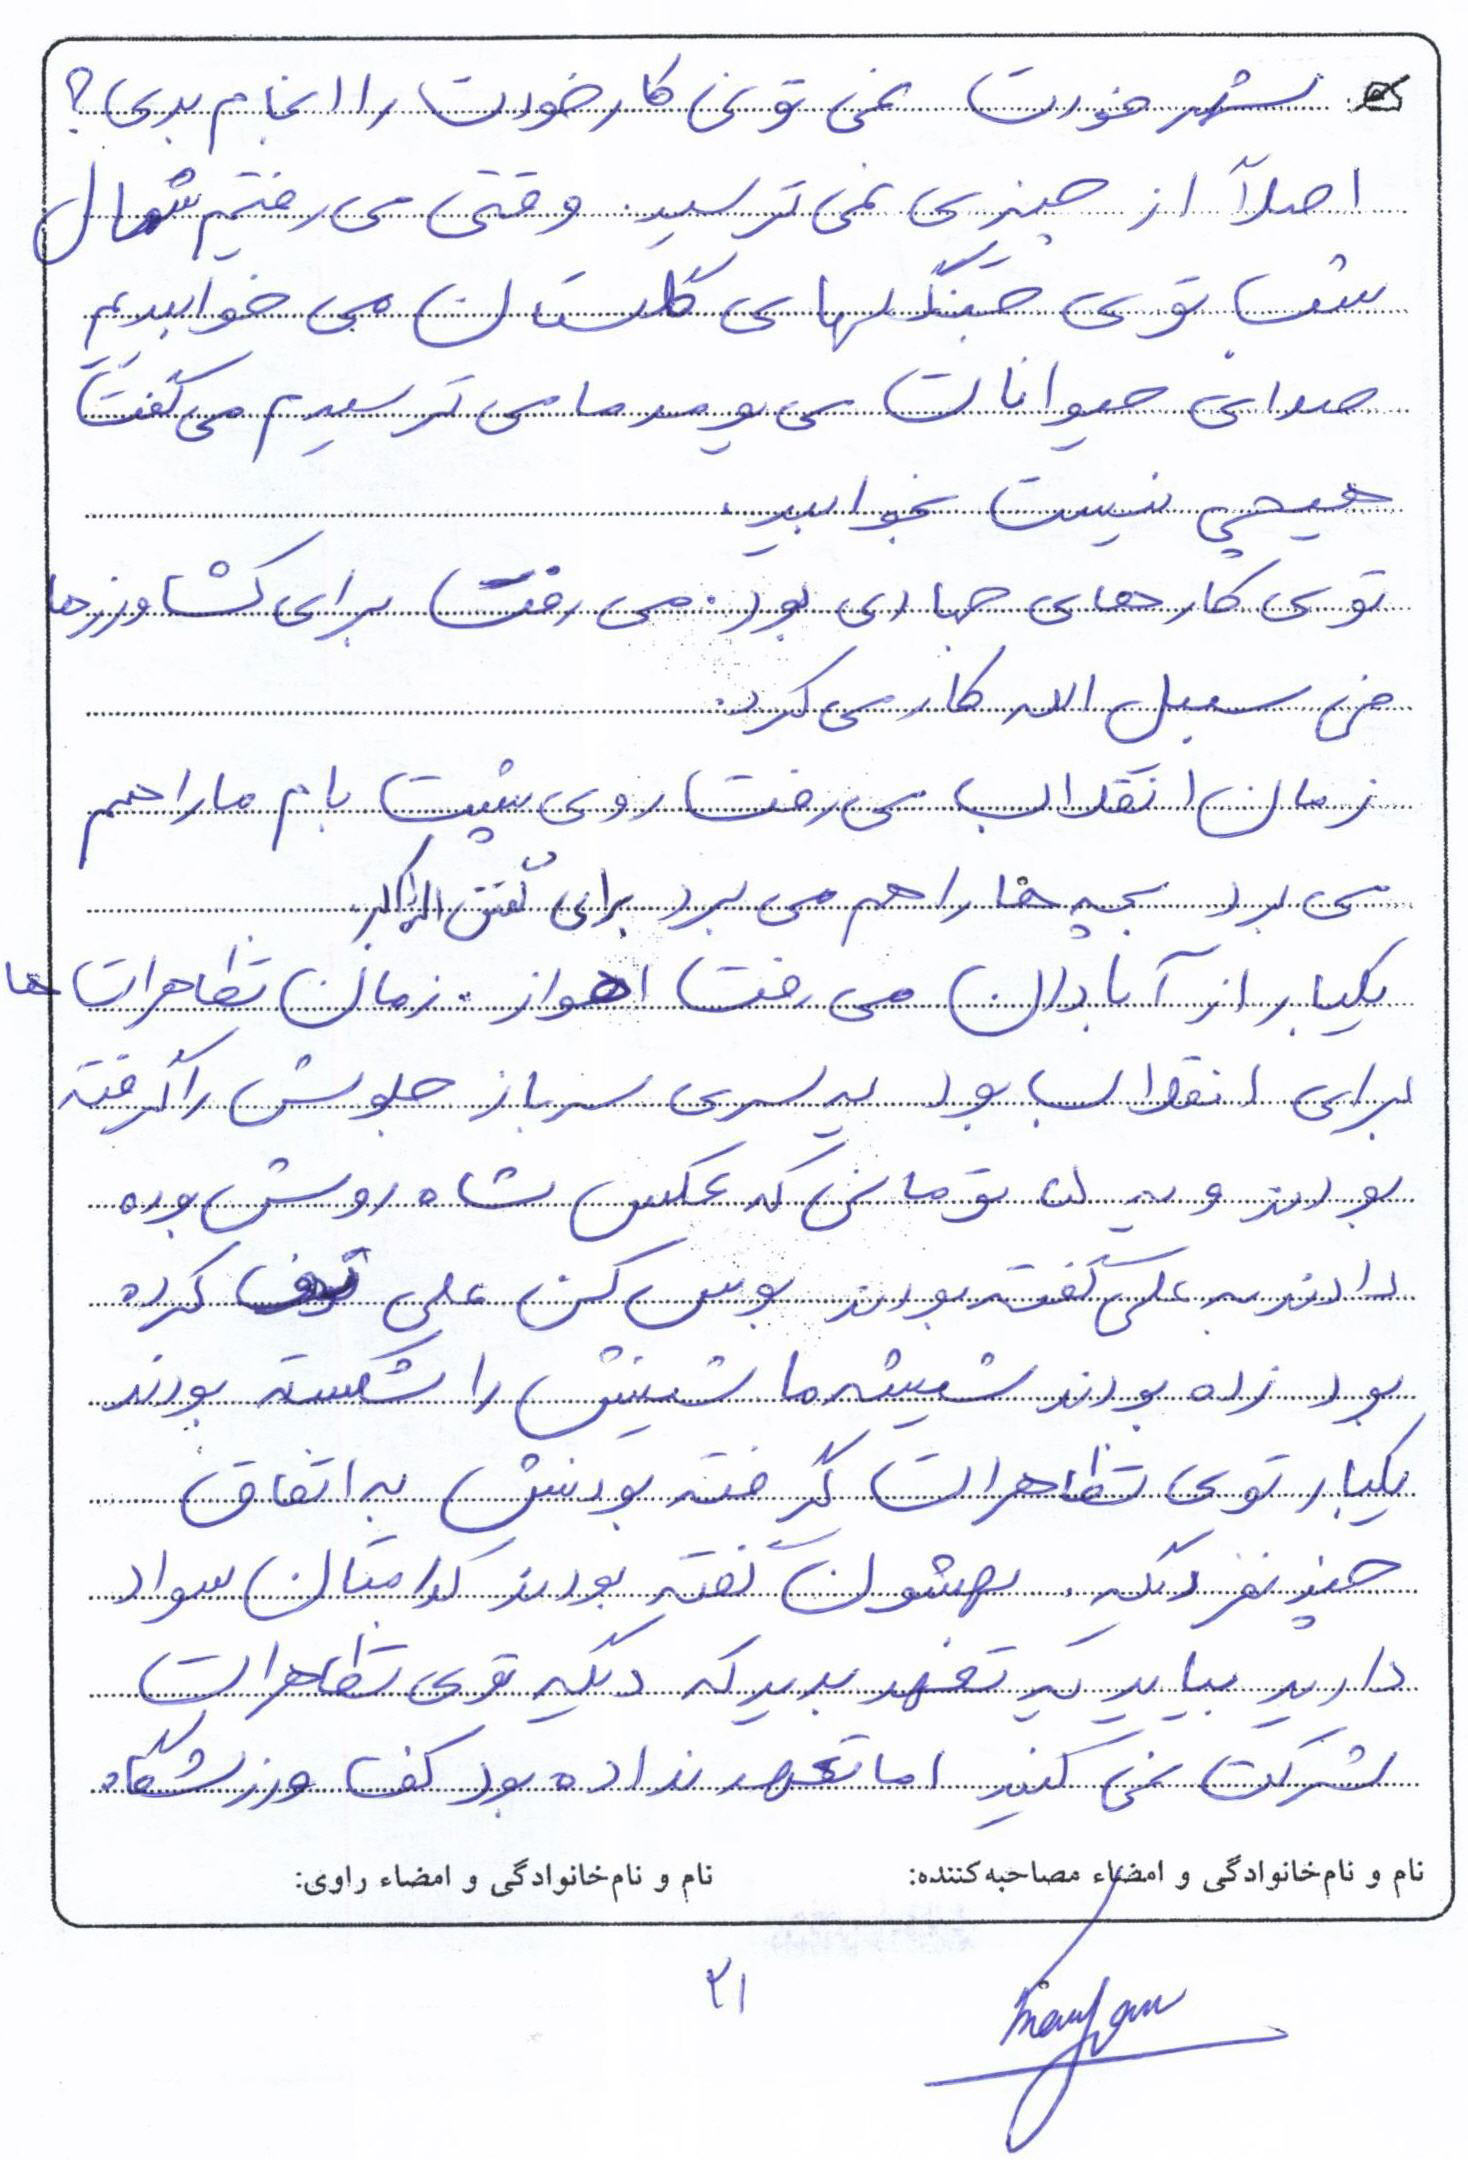 شهر خودت نمی تونی کار خودت را انجام بدی؟
اصلاً از چیزی نمی ترسید. وقتی می رفتیم شمال
شب توی جنگلهای گلستان می خوابیدیم
صدای حیوانات می یومد ما می ترسیدیم می گفت
هیچی نیست بخوابید.
توی کارهای جهادی بود. می رفت برای کشاورزها
فی سبیل الله کار می کرد.
زمان انقلاب می رفت روی پشت بام ما را هم
می برد بچه ها را هم می برد برای گفتن الله اکبر.
یکبار از آبادان می رفت اهواز. زمان تظاهرات ها
برای انقلاب بود یه سری سرباز جلوش را گرفته
بودند و یه تومانی که عکس شاه روش بوده
دادند به علی گفته بودند بوس کن علی تف کرده
بود زده بودند شیشه ماشینش را شکسته بودند
یکبار توی تظاهرات گرفته بودنش به اتفاق
چند نفر دیگه. بهشون گفته بودند کدامتان سواد
دارید بیایید یه تعهد بدید که دیگه توی تظاهرات
شرکت نمی کنید اما تعهد نداده بود کف ورزشگاه
نام و نام‌خانوادگی و امضاء مصاحبه‌کننده:
نام و نام‌خانوادگی و امضاء راوی:
۲۱